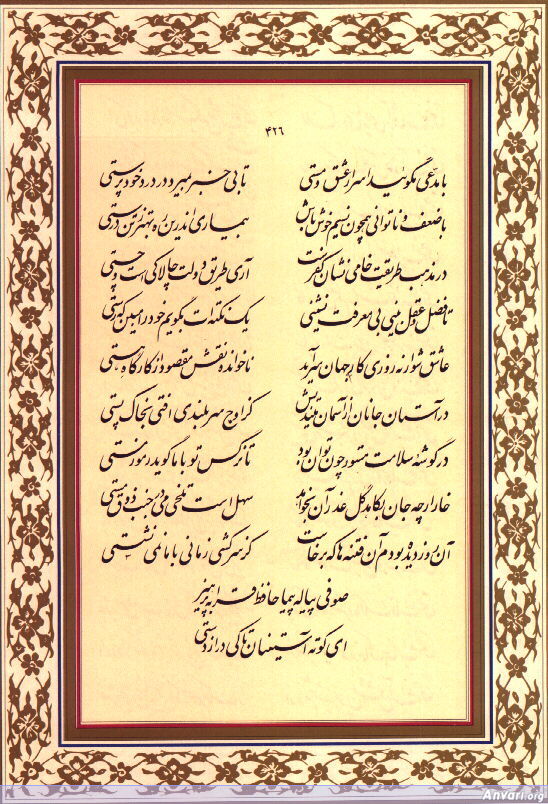 ۴۲۶
با مدعی مگوئید اسرار عشق و مستی تا بی خبر بمیرد در درد خودپرستی
با ضعف و ناتوانی همچون نسیم خوش باش بیماری اندرین ره بهتر ز تندرستی
در مذهب طریقت خامی نشان کفرست آری طریق دولت چالاکی است و چستی
تا فضل و عقل بینی بی معرفت نشینی یک نکته ات بگویم خود را مبین که رستی
عاشق شو ار نه روزی کار جهان سرآید ناخوانده نقش مقصود از کارگاه هستی
در آستان جانان از آسمان میندیش کز اوج سربلندی افتی بخاک پستی
در گوشهٔ سلامت مستور چون توان بود تا نرگس تو با ما گوید رموز مستی
خار ارچه جان بکاهد گل عذر آن بخواهد سهل است تلخی می در جنب ذوق مستی
آن روز دیده بودم آن فتنه ها که برخاست کز سرکشی زمانی با ما نمی نشستی
صوفی پیاله پیما حافظ قرابه پرهیز
ای کوته آستینان تا کی درازدستی
Anvari.org